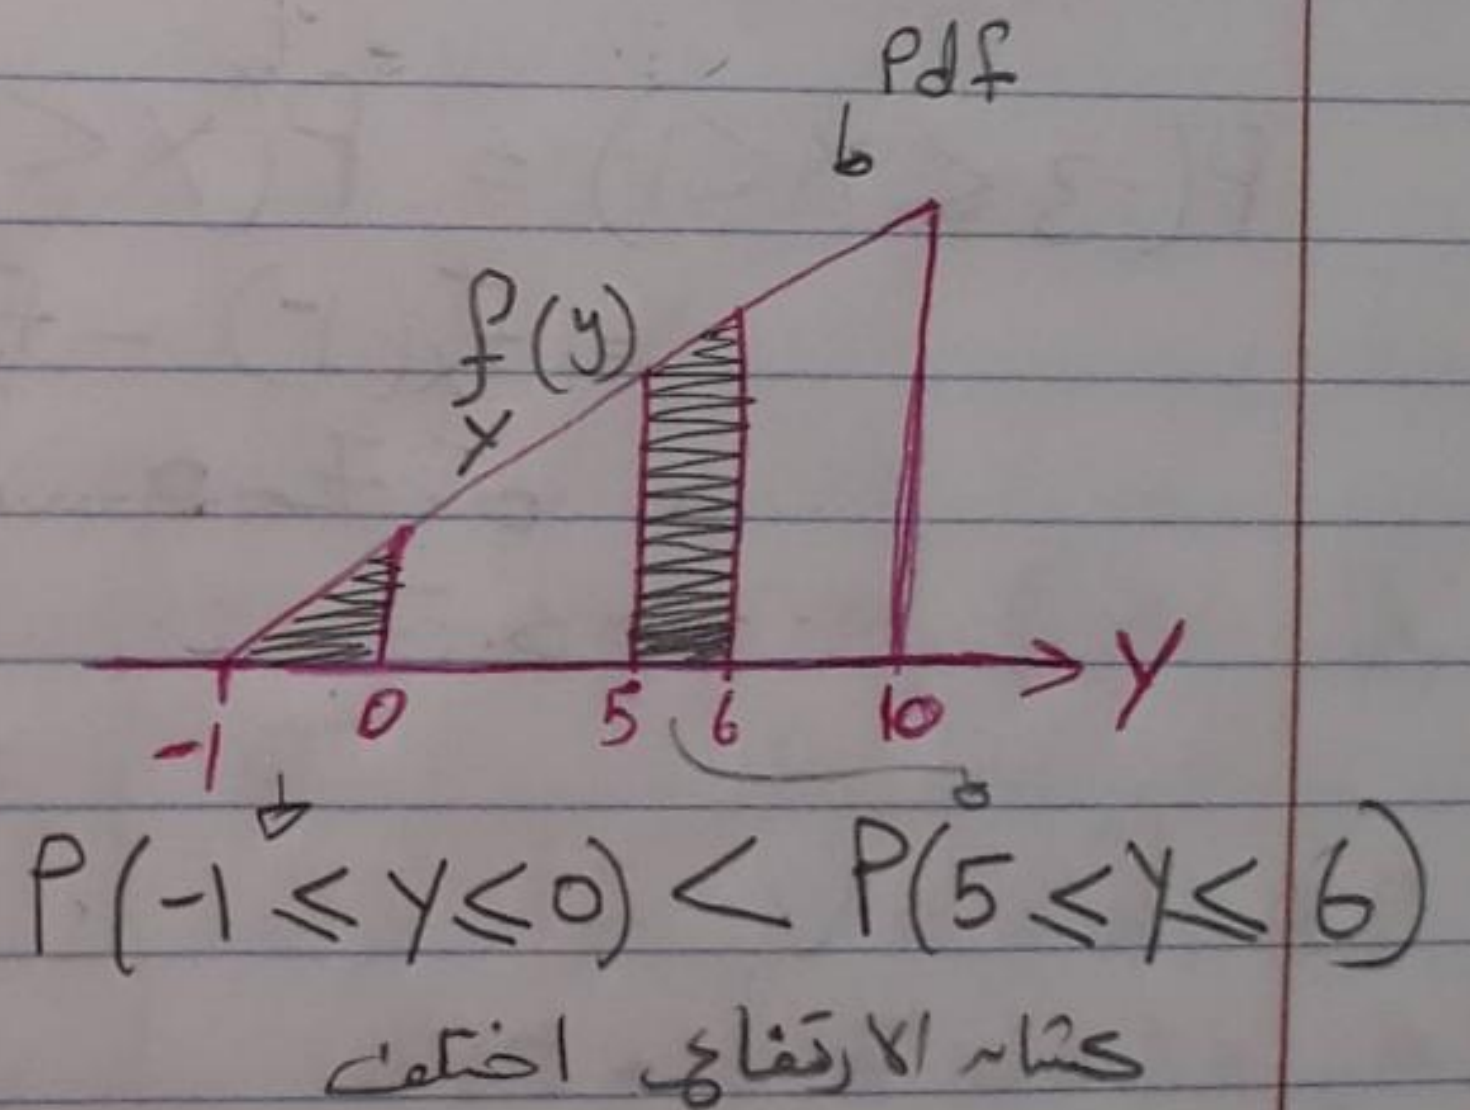 Pdf
b
f(y)
x
-1 0 5 6 10 y
P(-1 ≤ y ≤ 0) < P(5 ≤ y ≤ 6)
كشان الارتفاع اختلف